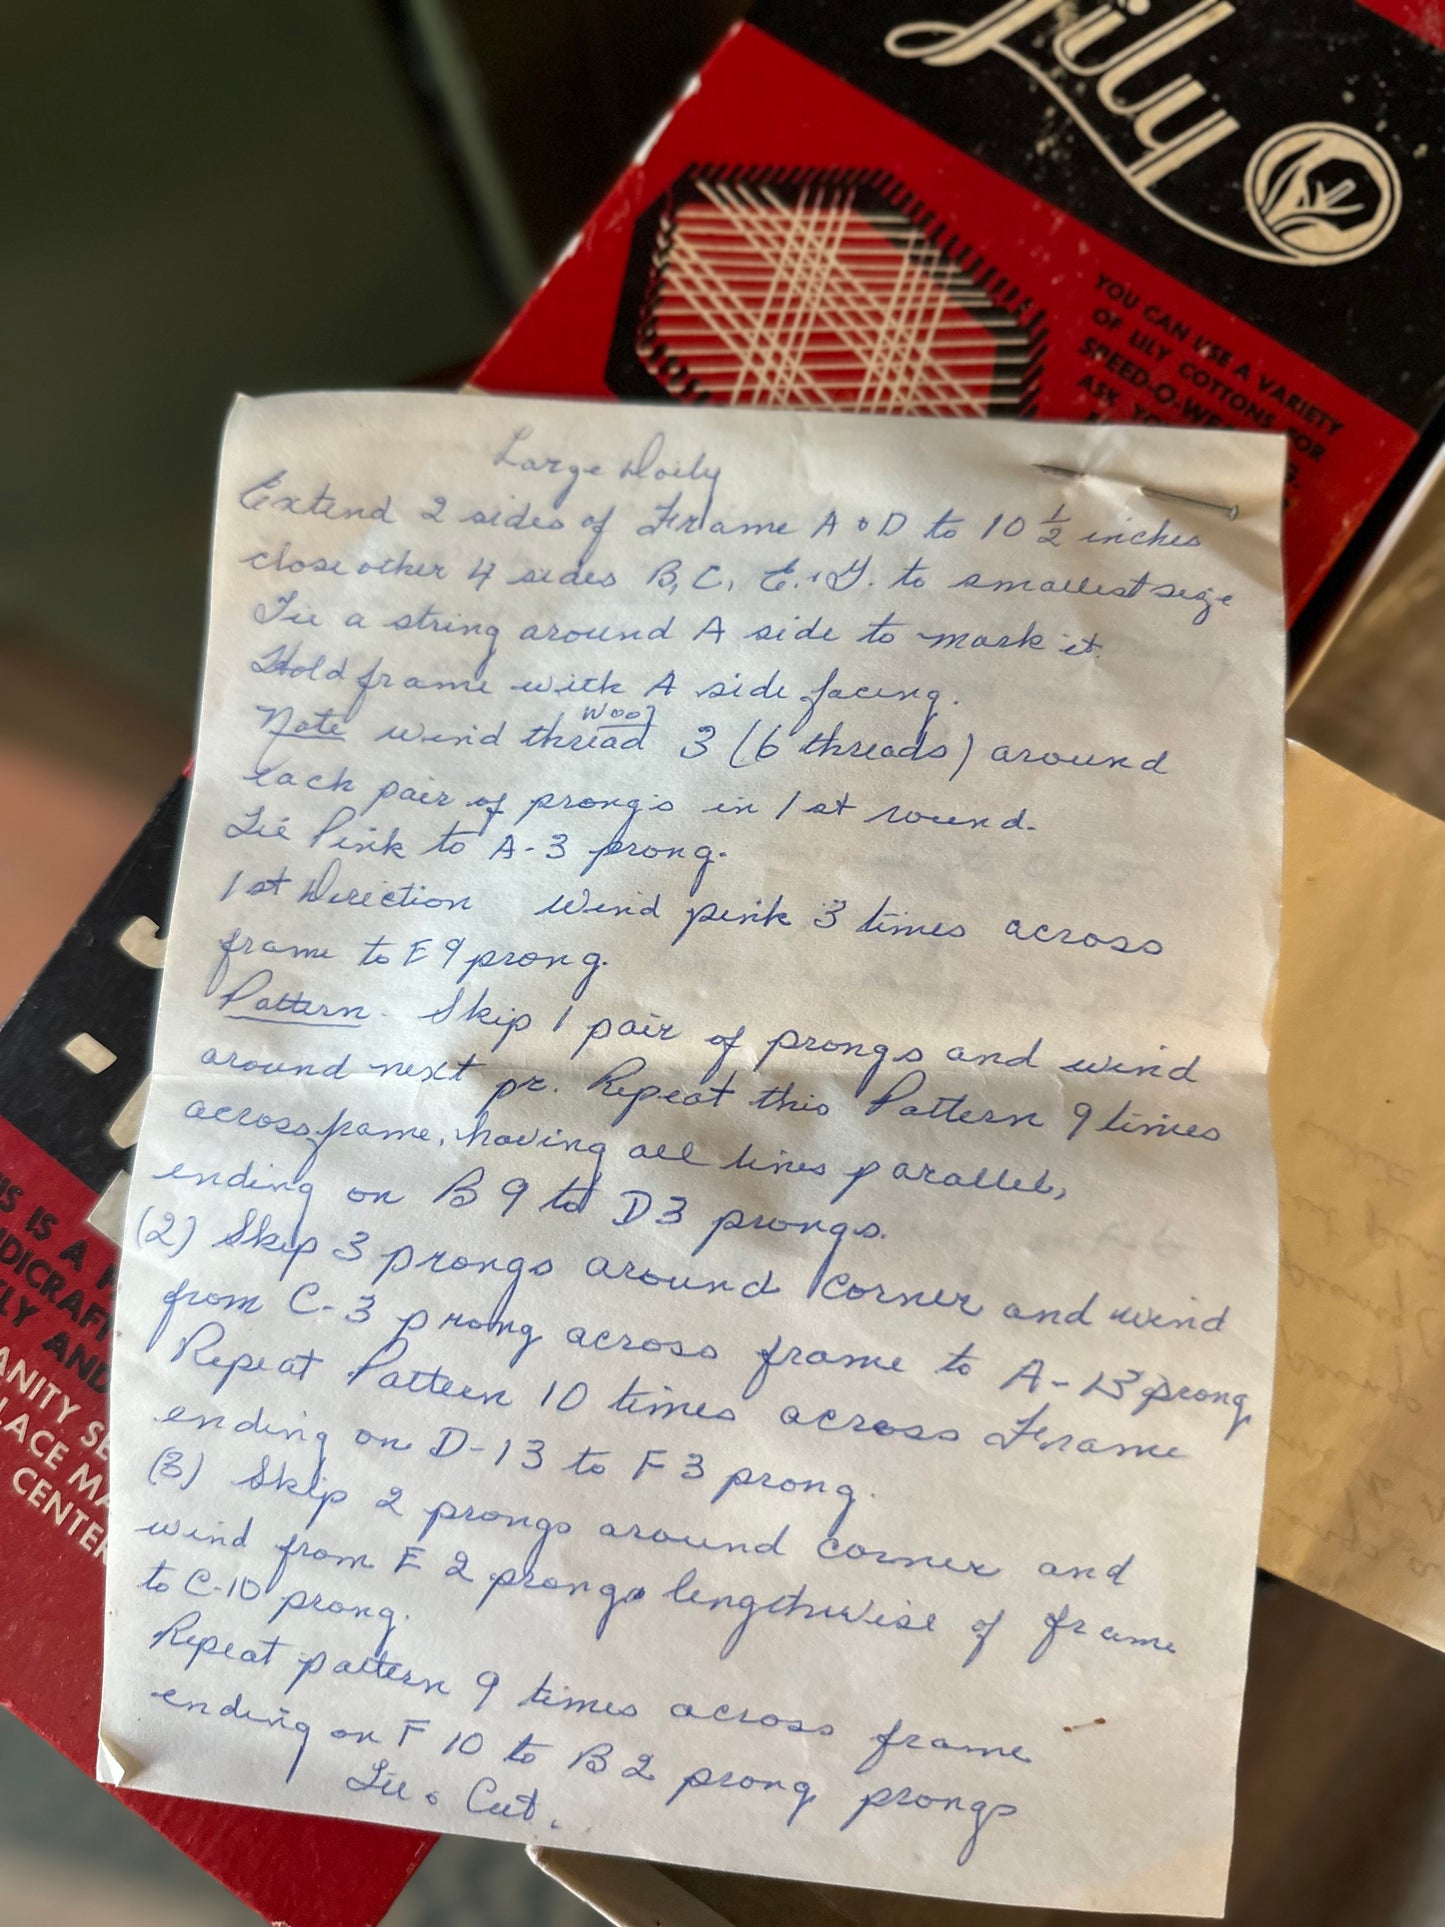 Lily
YOU CAN USE A VARIETY
OF LILY COTTONS FOR
SPEED-O-WE
ASK YO
Large Doily
Extend 2 sides of Frame A & D to 10 1/2 inches
close other 4 sides B, C, E. & F. to smallest size
Tie a string around A side to mark it.
Hold frame with A side facing.
Note wind thread wool 3 (6 threads) around
each pair of prongs in 1st round.
Tie Pink to A-3 prong.
1st Direction Wind pink 3 times across
frame to E 9 prong.
Pattern. Skip 1 pair of prongs and wind
around next pr. Repeat this Pattern 9 times
across frame, having all lines parallel,
ending on B 9 to D3 prongs.
(2) Skip 3 prongs around corner and wind
from C-3 prong across frame to A-13 prong
Repeat Pattern 10 times across Frame
ending on D-13 to F 3 prong.
(3) Skip 2 prongs around corner and
wind from E 2 prongs lengthwise of frame
to C-10 prong.
Repeat pattern 9 times across frame
ending on F 10 to B 2 prong prongs
Tie & Cut.
IS IS A H
NDICRAFT
KLY AND
ANITY SE
LACE MA
CENTER